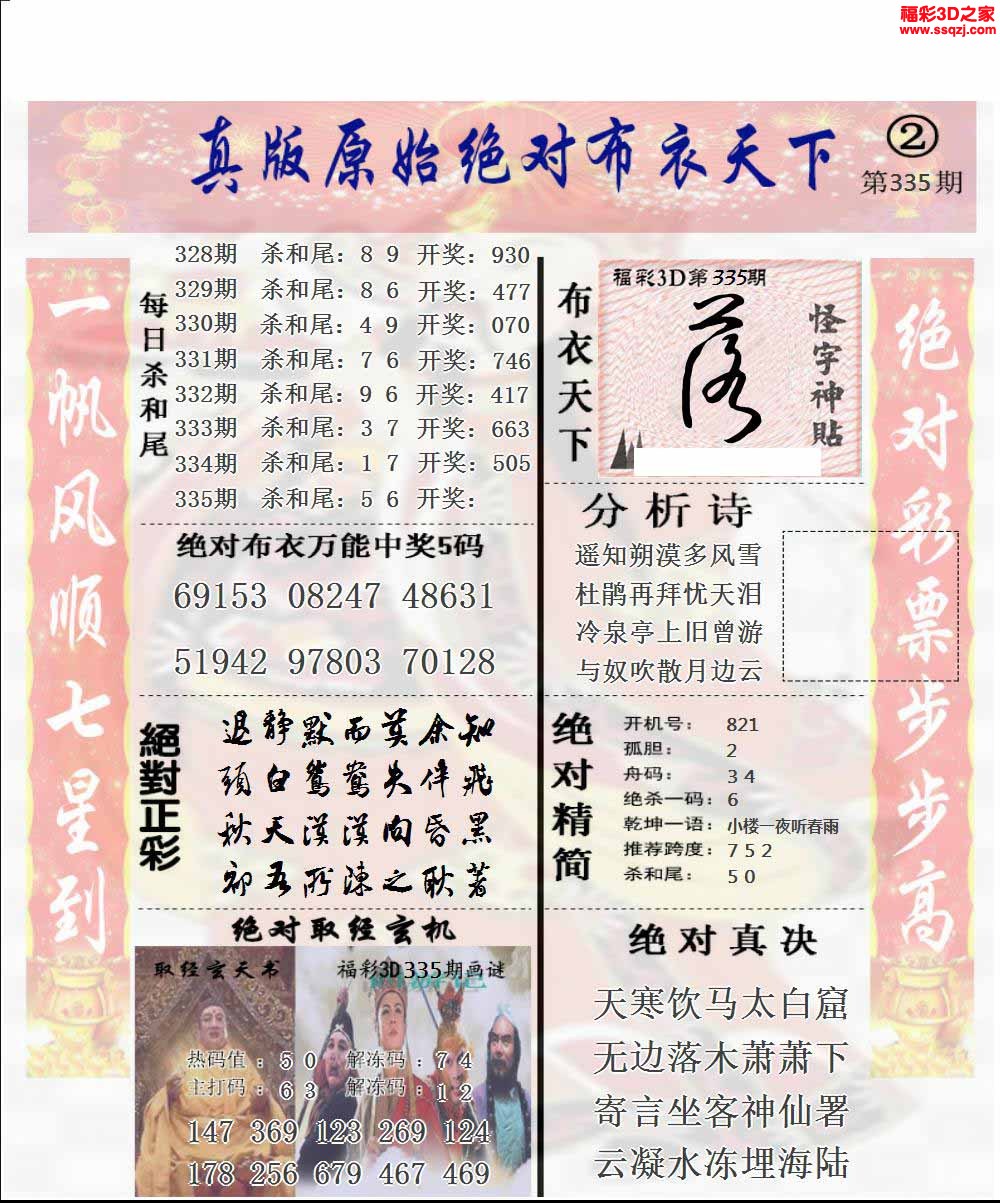 福彩3D之家
www.ssqzj.com
真版原始绝对布衣天下
②
第335期
一帆风顺七星到
每日杀和尾
328期 杀和尾：8 9 开奖：930
329期 杀和尾：8 6 开奖：477
330期 杀和尾：4 9 开奖：070
331期 杀和尾：7 6 开奖：746
332期 杀和尾：9 6 开奖：417
333期 杀和尾：3 7 开奖：663
334期 杀和尾：1 7 开奖：505
335期 杀和尾：5 6 开奖：
绝对布衣万能中奖5码
69153 08247 48631
51942 97803 70128
絕對正彩
退静默而莫余知
頭白鸳鸯失伴飛
秋天漠漠向昏黑
郤吾所陳之耿著
绝对取经玄机
取经玄天书
福彩3D335期画谜
热码值：5 0 解冻码：7 4
主打码：6 3 解冻码：1 2
147 369 123 269 124
178 256 679 467 469
布衣天下
福彩3D第335期
落
怪字神贴
分析诗
遥知朔漠多风雪
杜鹃再拜忧天泪
冷泉亭上旧曾游
与奴吹散月边云
绝对精简
开机号： 821
孤胆： 2
舟码： 3 4
绝杀一码：6
乾坤一语：小楼一夜听春雨
推荐跨度：7 5 2
杀和尾： 5 0
绝对真决
天寒饮马太白窟
无边落木萧萧下
寄言坐客神仙署
云凝水冻埋海陆
绝对彩票步步高